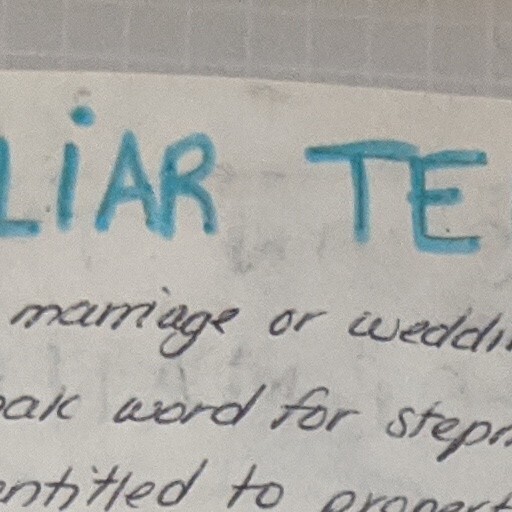 LIAR TE
marriage or weddi
oak word for step
entitled to propert